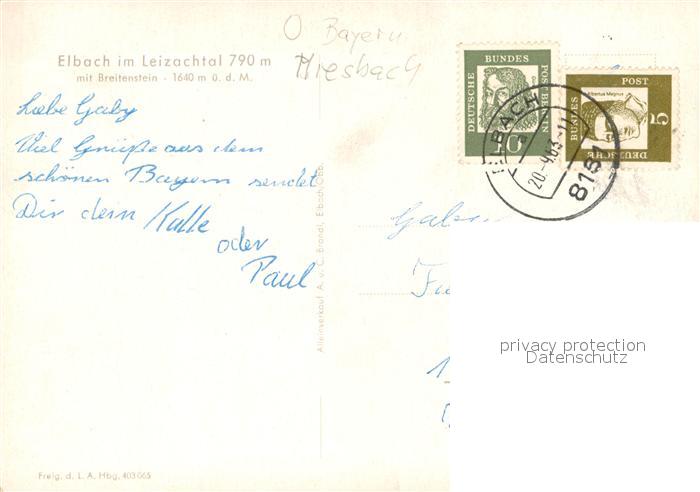 O Bayern
Miesbach
Elbach im Leizachtal 790 m
mit Breitenstein - 1640 m ü. d. M.
Liebe Gaby
Viel Grüße aus dem
schönen Bayern sendet
Dir dein Kalle
oder
Paul
Alleinverkauf A. u. C. Brandl, Elbach/Obb.
Freig. d. L. A. Hbg. 403 065
DEUTSCHE BUNDES POST BERLIN
10
DEUTSCHE BUNDES POST
Albertus Magnus
5
ELBACH
a
20.-4.63.-11
8151
privacy protection
Datenschutz